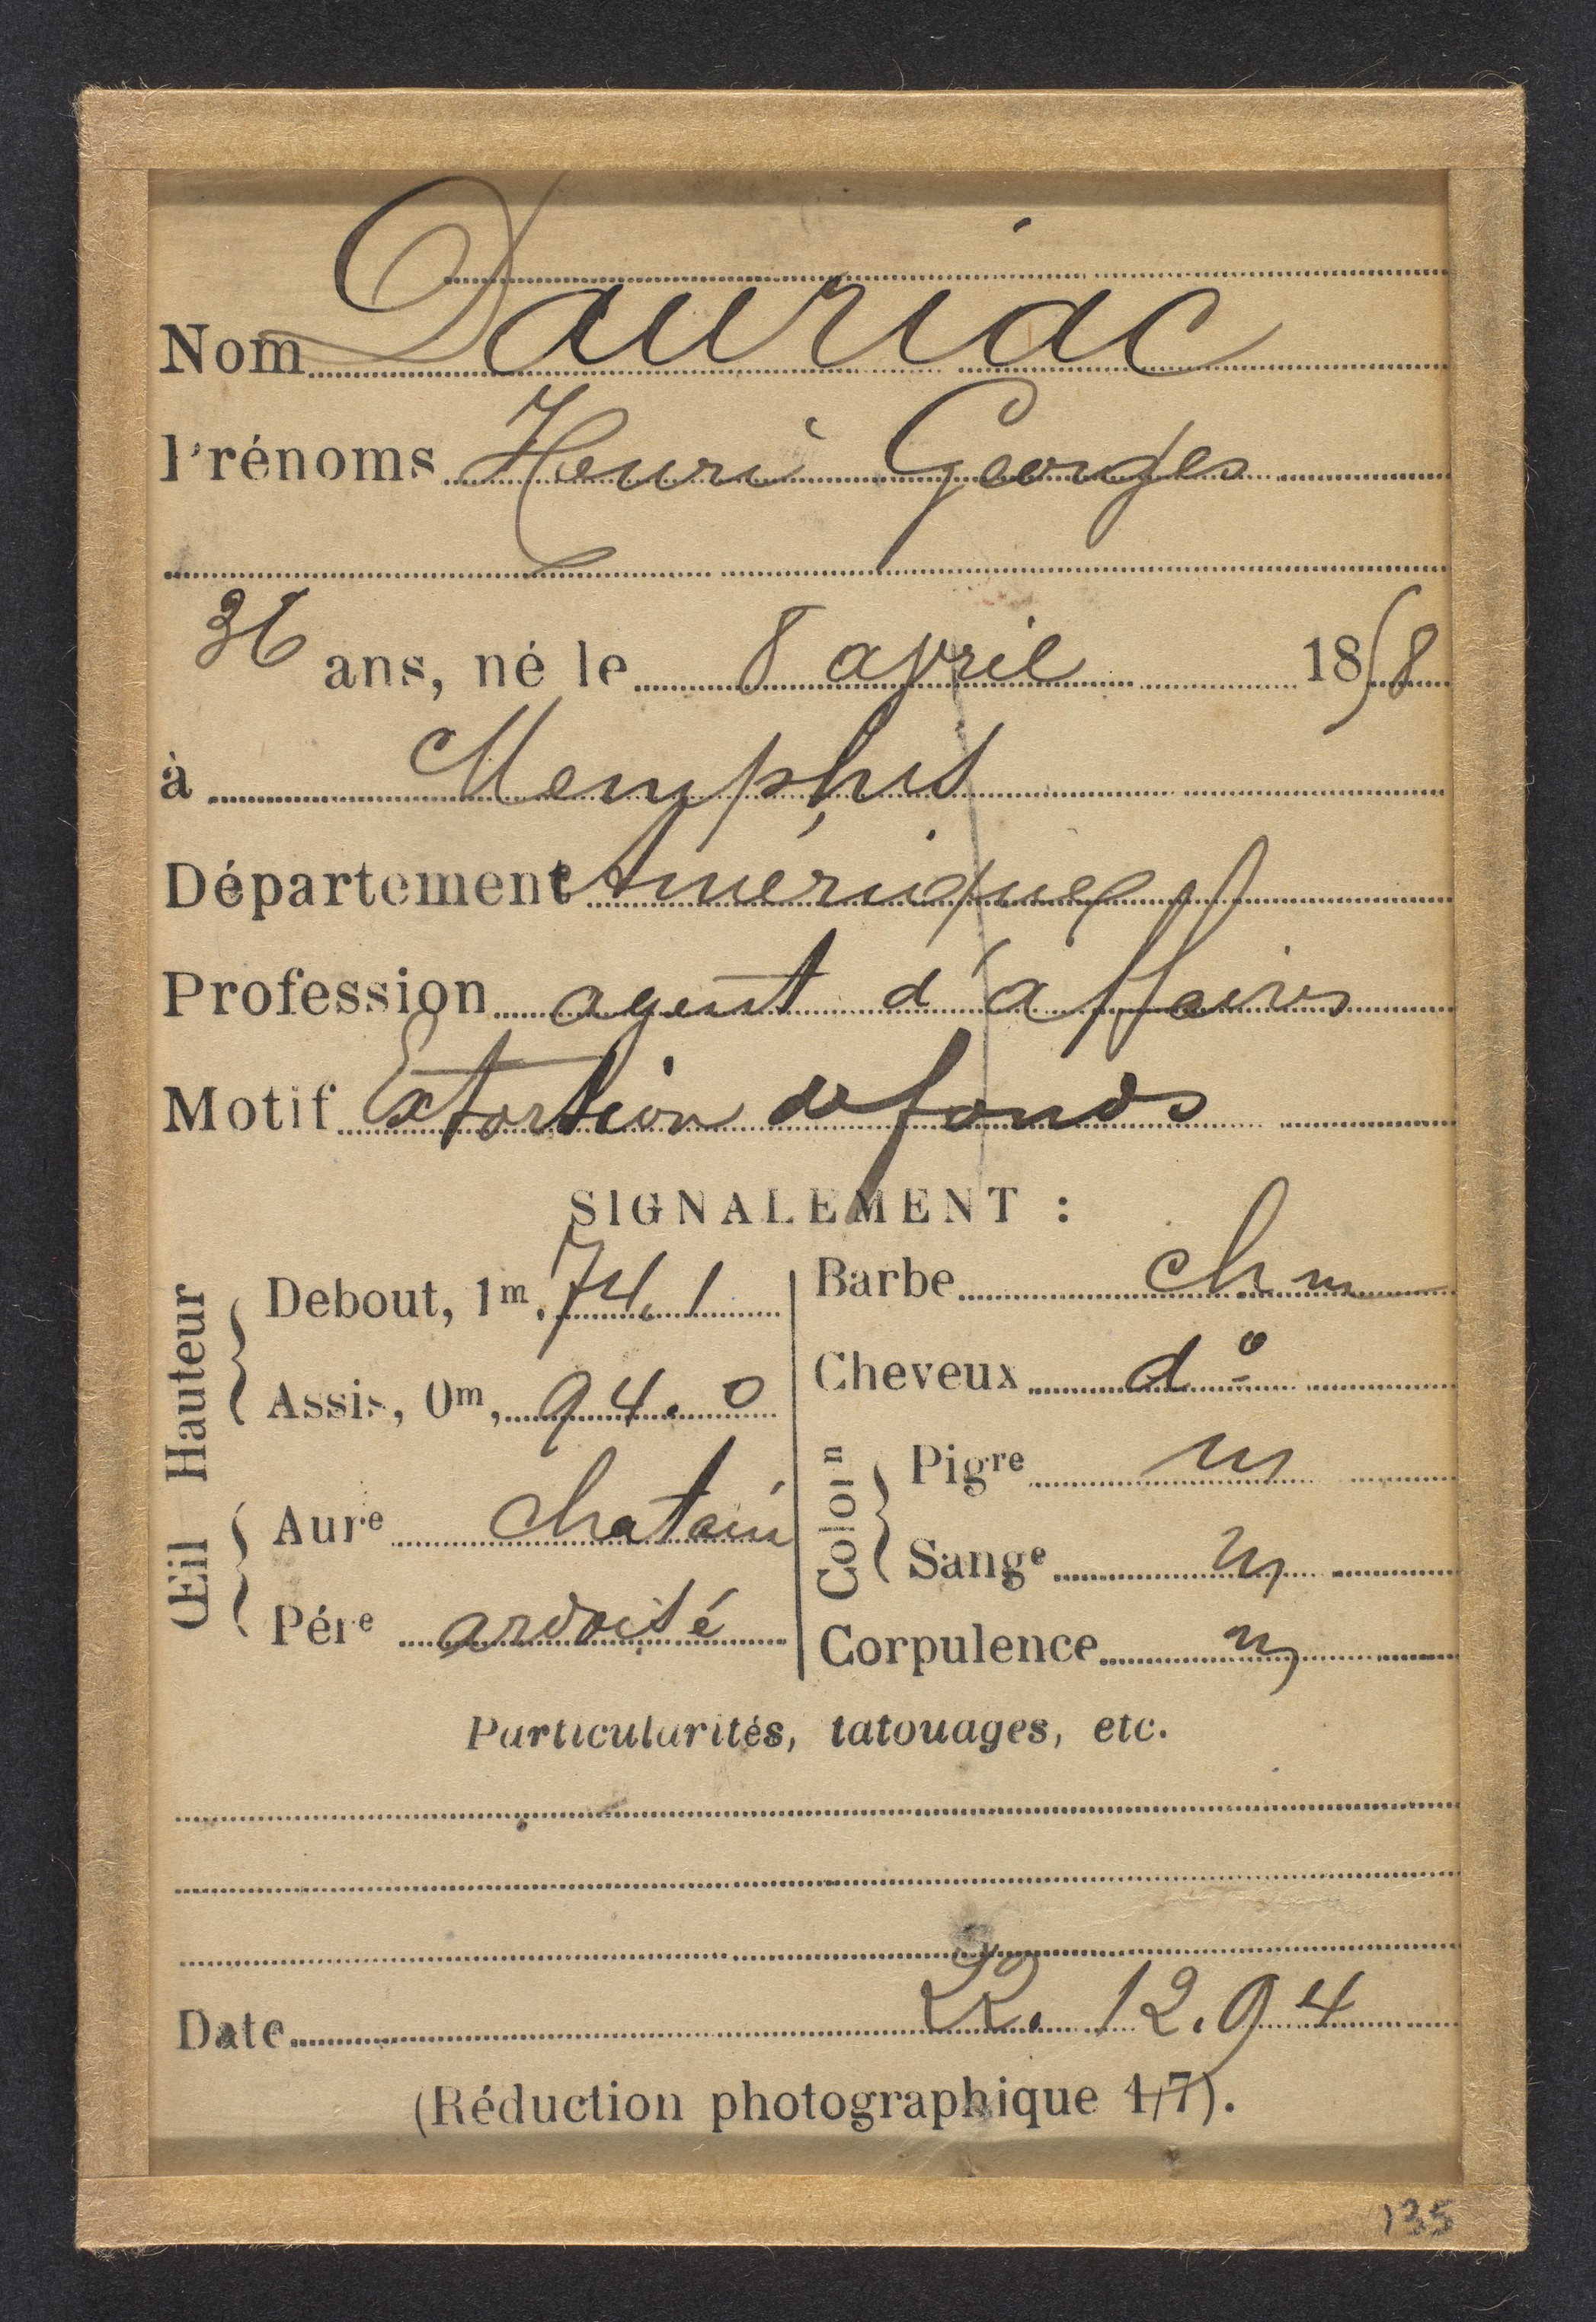 Nom Dauriac
Prénoms Henri Georges
36 ans, né le 8 avril 1858
à Memphis
Département Amérique
Profession agent d'affaires
Motif Extortion de fonds
SIGNALEMENT :
Hauteur
Debout, 1m, 74.1
Assis, 0m, 94.0
Œil
Aure chatain
Pére ardoisé
Barbe ch m
Cheveux do
Colorn
Pigre m
Sange m
Corpulence m
Particularités, tatouages, etc.
Date 22.12.94
(Réduction photographique 1/7).
135